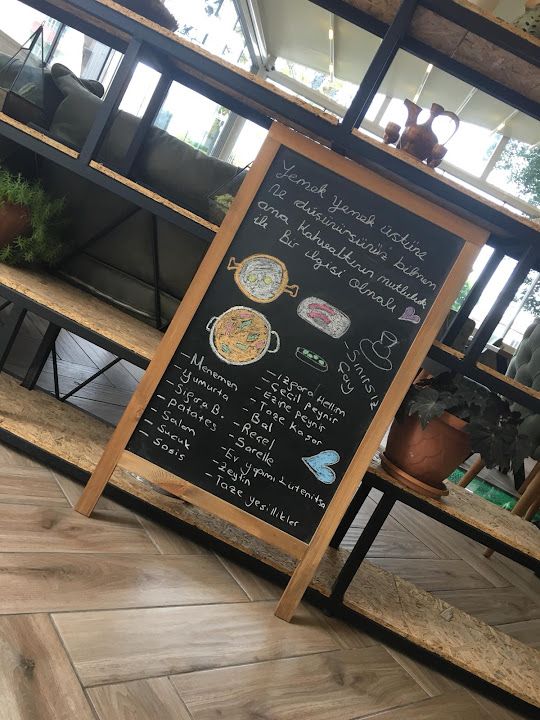 Yemek Yemek üstüne
Ne düşünürsünüz bilmem
ama kahvaltının mutlulukla
ile bir ilgisi olmalı
Sınırsız
Çay
- Menemen
- Yumurta
- Sigara B.
- Patates
- Salam
- Sucuk
- Sosis
- Izgara Hellim
- Çeçil peynir
- Ezine peynir
- Taze kaşar
- Bal
- Reçel
- Sarelle
- Ev yapımı Lutenitsa
- Zeytin
- Taze yeşillikler